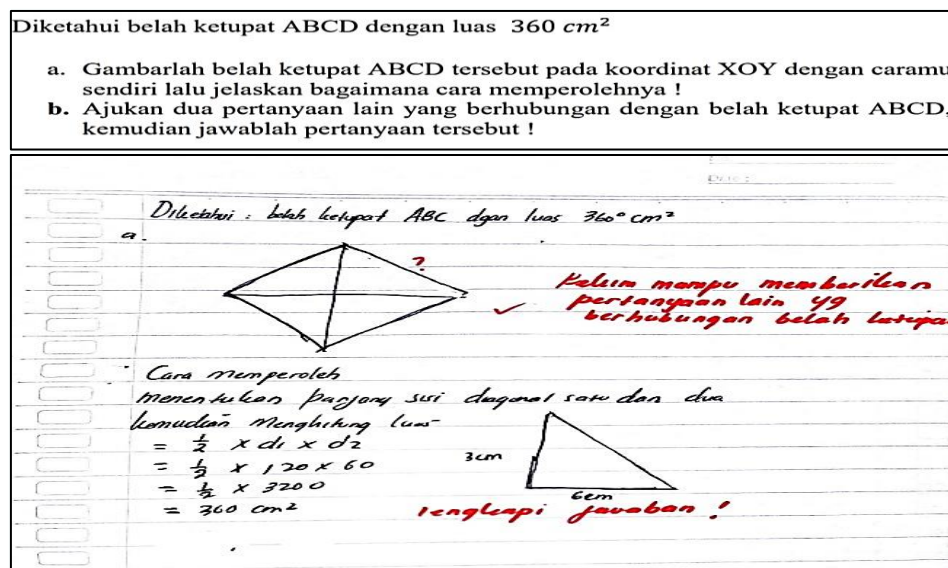 Diketahui belah ketupat ABCD dengan luas 360 cm²
a. Gambarlah belah ketupat ABCD tersebut pada koordinat XOY dengan caramu
sendiri lalu jelaskan bagaimana cara memperolehnya !
b. Ajukan dua pertanyaan lain yang berhubungan dengan belah ketupat ABCD,
kemudian jawablah pertanyaan tersebut !
Diketahui : belah ketupat ABC dgan luas 360° cm²
a.
?
Belum mampu memberikan
pertanyaan lain yg
berhubungan belah ketupa
Cara memperoleh
menentukan panjang sisi diagonal satu dan dua
kemudian menghitung luas
= ½ × d1 × d2
= ½ × 120 × 60
= ½ × 3200
= 360 cm²
3cm
6cm
lengkapi jawaban !